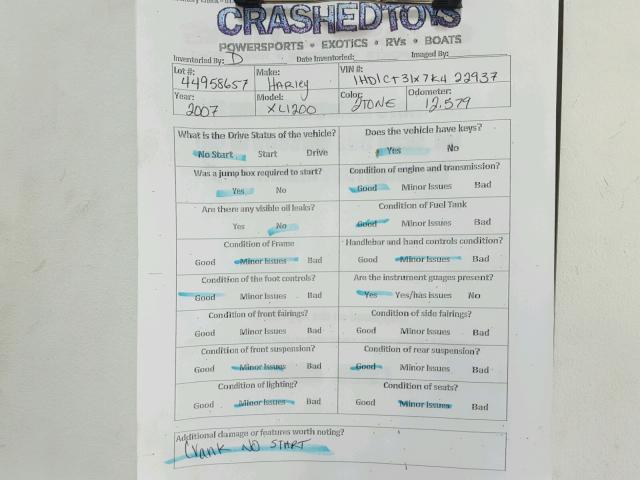 CRASHEDTOYS
POWERSPORTS • EXOTICS • RVs • BOATS
Inventoried By: D Date Inventoried: Imaged By:
Lot #: 44958657 Make: HARLEY VIN #: 1HD1CT31X7K422937
Year: 2007 Model: XL1200 Color: 2TONE Odometer: 12,579
What is the Drive Status of the vehicle? Does the vehicle have keys?
No Start Start Drive Yes No
Was a jump box required to start? Condition of engine and transmission?
Yes No Good Minor Issues Bad
Are there any visible oil leaks? Condition of Fuel Tank
Yes No Good Minor Issues Bad
Condition of Frame Handlebar and hand controls condition?
Good Minor Issues Bad Good Minor Issues Bad
Condition of the foot controls? Are the instrument guages present?
Good Minor Issues Bad Yes Yes/has issues No
Condition of front fairings? Condition of side fairings?
Good Minor Issues Bad Good Minor Issues Bad
Condition of front suspension? Condition of rear suspension?
Good Minor Issues Bad Good Minor Issues Bad
Condition of lighting? Condition of seats?
Good Minor Issues Bad Good Minor Issues Bad
Additional damage or features worth noting?
Crank NO START